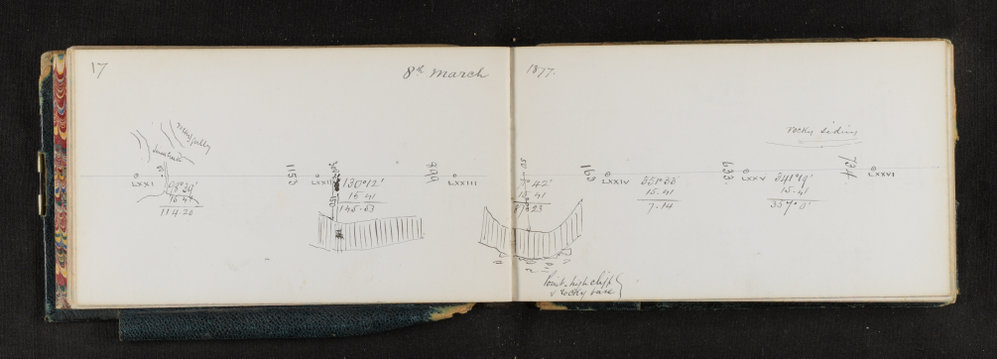 17
8th March
1877.
rocky siding
LXXI
98°39'
15.41
114.20
153
LXXII
130°12'
15.41
145.53
499
LXXIII
42'
15.41
87°23
163
LXXIV
351°33'
15.41
7.14
633
LXXV
341°19'
15.41
357°0'
734
LXXVI
Point high cliff
& rocky base